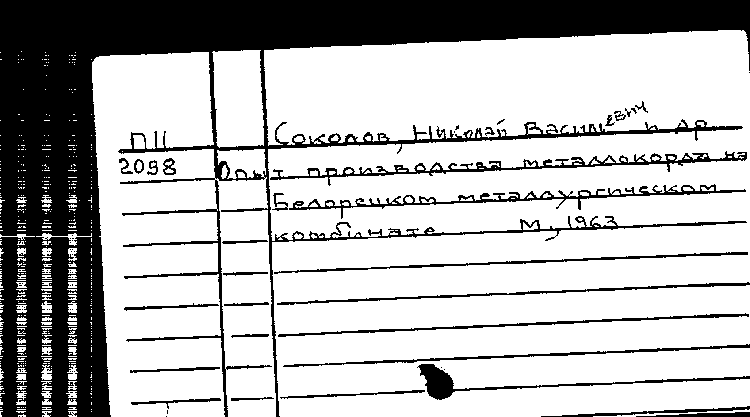 П11 Соколов, Николай Васильевич и др.
2098 Опыт производства металлокорда на
Белорецком металлургическом
комбинате М., 1963